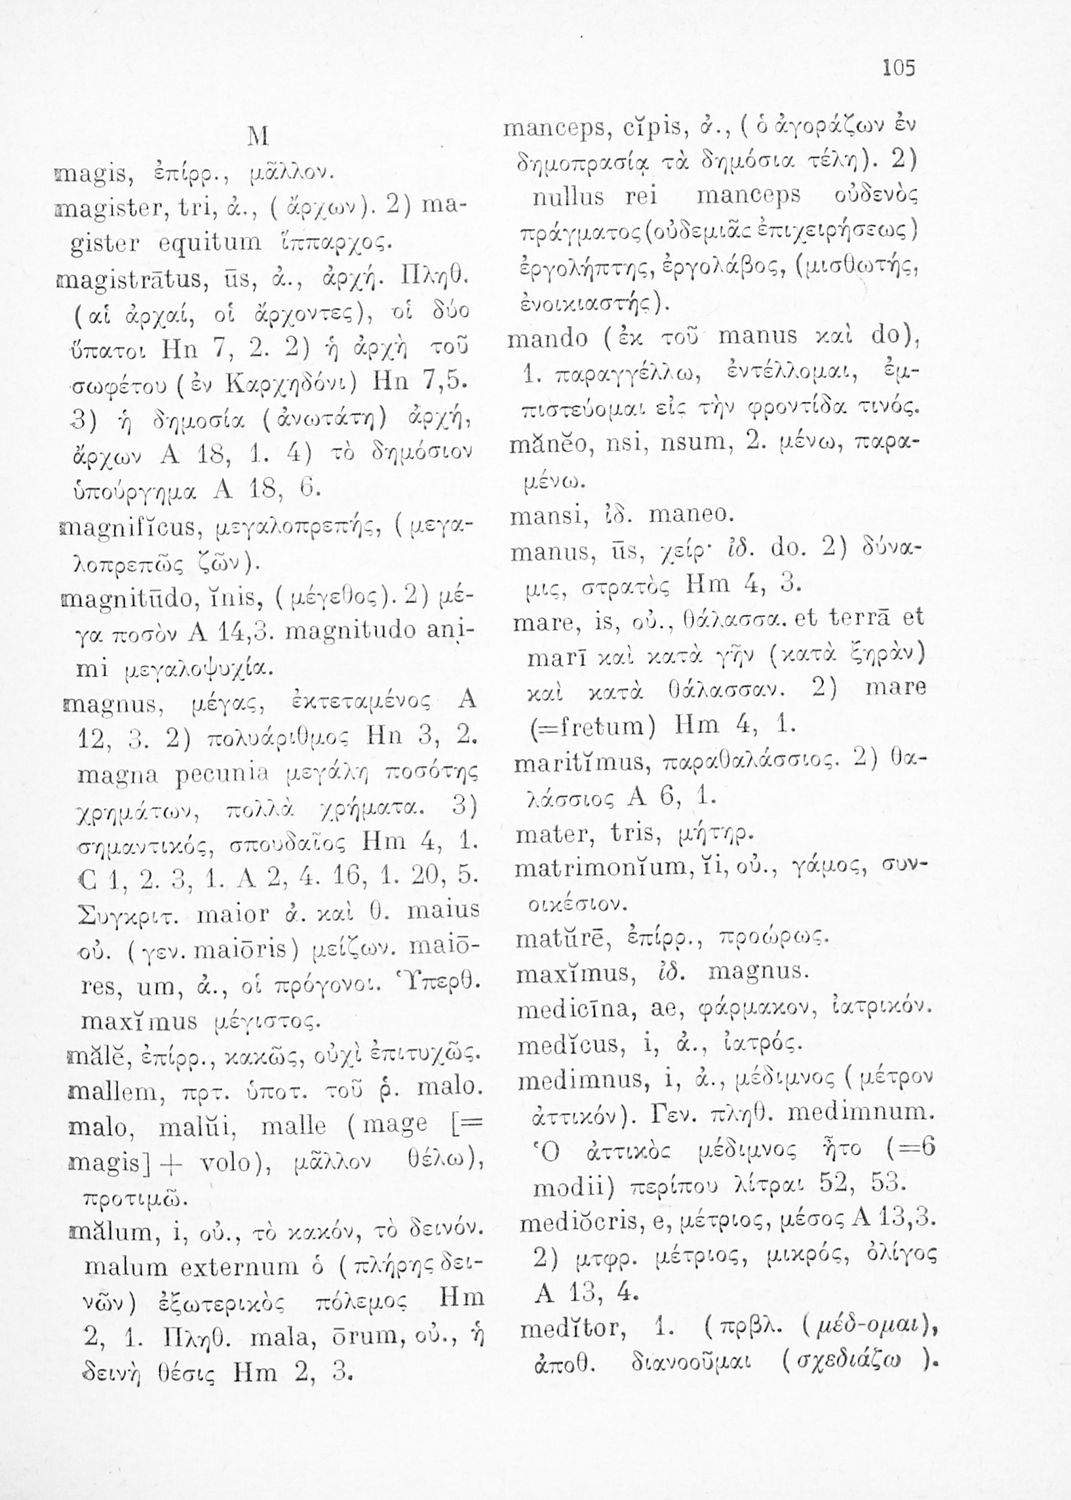 105
M
magis, ἐπίρρ., μᾶλλον.
magister, tri, ἀ., ( ἄρχων). 2) ma-
gister equitum ἵππαρχος.
magistrātus, ūs, ἀ., ἀρχή. Πληθ.
(αἱ ἀρχαί, οἱ ἄρχοντες), οἱ δύο
ὕπατοι Hn 7, 2. 2) ἡ ἀρχὴ τοῦ
σωφέτου ( ἐν Καρχηδόνι) Hn 7,5.
3) ἡ δημοσία (ἀνωτάτη) ἀρχή,
ἄρχων A 18, 1. 4) τὸ δημόσιον
ὑπούργημα A 18, 6.
magnifĭcus, μεγαλοπρεπής, ( μεγα-
λοπρεπῶς ζῶν).
magnitūdo, ĭnis, ( μέγεθος). 2) μέ-
γα ποσὸν A 14,3. magnitudo ani-
mi μεγαλοψυχία.
magnus, μέγας, ἐκτεταμένος A
12, 3. 2) πολυάριθμος Hn 3, 2.
magna pecunia μεγάλη ποσότης
χρημάτων, πολλὰ χρήματα. 3)
σημαντικός, σπουδαῖος Hm 4, 1.
C 1, 2. 3, 1. A 2, 4. 16, 1. 20, 5.
Συγκριτ. maior ἀ. καὶ θ. maius
οὐ. (γεν. maiōris) μείζων. maiō-
res, um, ἀ., οἱ πρόγονοι. Ὑπερθ.
maxĭmus μέγιστος.
mălĕ, ἐπίρρ., κακῶς, οὐχὶ ἐπιτυχῶς.
mallem, πρτ. ὑποτ. τοῦ ῥ. malo.
malo, malŭi, malle (mage [=
magis] + volo), μᾶλλον θέλω),
προτιμῶ.
mălum, i, οὐ., τὸ κακόν, τὸ δεινόν.
malum externum ὁ ( πλήρης δει-
νῶν) ἐξωτερικὸς πόλεμος Hm
2, 1. Πληθ. mala, ōrum, οὐ., ἡ
δεινὴ θέσις Hm 2, 3.
manceps, cĭpis, ἀ., ( ὁ ἀγοράζων ἐν
δημοπρασίᾳ τὰ δημόσια τέλη). 2)
nullus rei manceps οὐδενὸς
πράγματος (οὐδεμιᾶς ἐπιχειρήσεως)
ἐργολήπτης, ἐργολάβος, (μισθωτής,
ἐνοικιαστής).
mando (ἐκ τοῦ manus καὶ do),
1. παραγγέλλω, ἐντέλλομαι, ἐμ-
πιστεύομαι εἰς τὴν φροντίδα τινός.
mănĕo, nsi, nsum, 2. μένω, παρα-
μένω.
mansi, ἰδ. maneo.
manus, ūs, χείρ· ἰδ. do. 2) δύνα-
μις, στρατὸς Hm 4, 3.
mare, is, οὐ., θάλασσα. et terrā et
marī καὶ κατὰ γῆν (κατὰ ξηρὰν)
καὶ κατὰ θάλασσαν. 2) mare
(=fretum) Hm 4, 1.
maritĭmus, παραθαλάσσιος. 2) θα-
λάσσιος A 6, 1.
mater, tris, μήτηρ.
matrimonĭum, ĭi, οὐ., γάμος, συν-
οικέσιον.
matŭrē, ἐπίρρ., προώρως.
maxĭmus, ἰδ. magnus.
medicīna, ae, φάρμακον, ἰατρικόν.
medĭcus, i, ἀ., ἰατρός.
medimnus, i, ἀ., μέδιμνος ( μέτρον
ἀττικόν). Γεν. πληθ. medimnum.
Ὁ ἀττικὸς μέδιμνος ἦτο (=6
modii) περίπου λίτραι 52, 53.
mediŏcris, e, μέτριος, μέσος A 13,3.
2) μτφρ. μέτριος, μικρός, ὀλίγος
A 13, 4.
medĭtor, 1. ( πρβλ. ( μέδ-ομαι),
ἀποθ. διανοοῦμαι ( σχεδιάζω ).